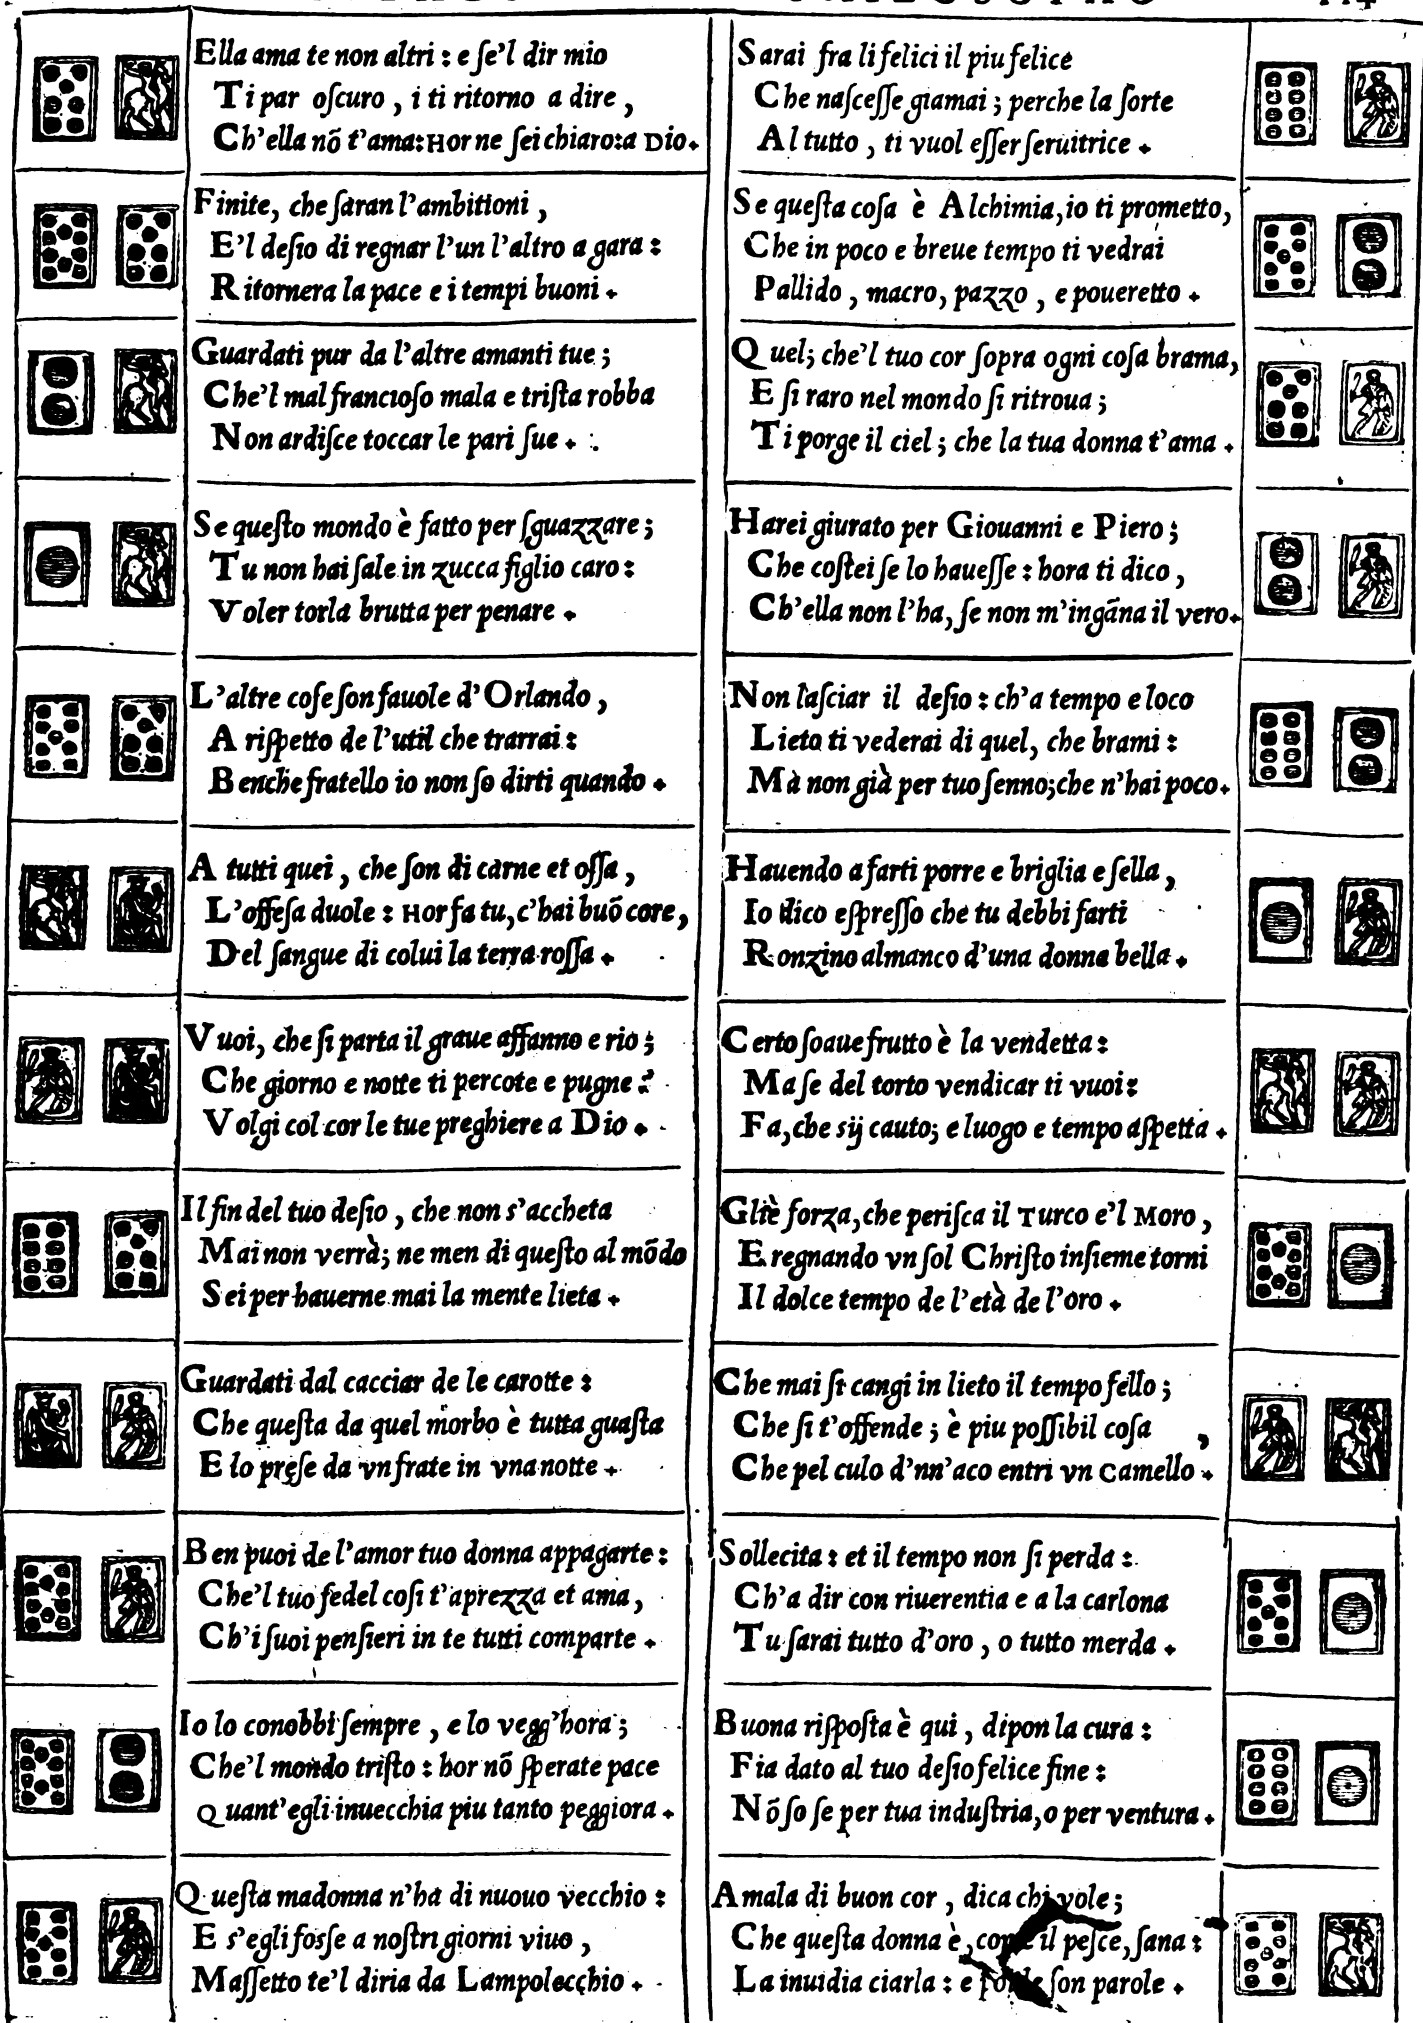 Ella ama te non altri : e ſe'l dir mio
Ti par oſcuro , i ti ritorno a dire ,
Ch'ella nõ t'ama: Hor ne ſei chiaro: a Dio.
Finite, che ſaran l'ambitioni ,
E'l deſio di regnar l'un l'altro a gara :
Ritornera la pace e i tempi buoni .
Guardati pur da l'altre amanti tue ;
Che'l mal francioſo mala e triſta robba
Non ardiſce toccar le pari ſue .
Se queſto mondo è fatto per ſguazzare ;
Tu non hai ſale in zucca figlio caro :
Voler torla brutta per penare .
L'altre coſe ſon fauole d'Orlando ,
A riſpetto de l'util che trarrai :
Benche fratello io non ſo dirti quando .
A tutti quei , che ſon di carne et oſſa ,
L'offeſa duole : Hor fa tu, c'hai buõ core ,
Del ſangue di colui la terra roſſa .
Vuoi, che ſi parta il graue affanno e rio ;
Che giorno e notte ti percote e pugne ?
Volgi col cor le tue preghiere a Dio .
Il fin del tuo deſio , che non s'accheta
Mai non verrà; ne men di queſto al mõdo
Sei per hauerne mai la mente lieta .
Guardati dal cacciar de le carotte :
Che queſta da quel morbo è tutta guaſta
E lo preſe da vn frate in vna notte .
Ben puoi de l'amor tuo donna appagarte :
Che'l tuo fedel coſi t'aprezza et ama ,
Ch'i ſuoi penſieri in te tutti comparte .
Io lo conobbi ſempre , e lo vegg'hora ;
Che'l mondo triſto : hor nõ ſperate pace
Quant'egli inuecchia piu tanto peggiora .
Queſta madonna n'ha di nuouo vecchio :
E s'egli foſſe a noſtri giorni viuo ,
Maſſetto te'l diria da Lampolecchio .
Sarai fra li felici il piu felice
Che naſceſſe giamai ; perche la ſorte
Al tutto , ti vuol eſſer ſeruitrice .
Se queſta coſa è Alchimia, io ti prometto,
Che in poco e breue tempo ti vedrai
Pallido , macro, pazzo , e poueretto .
Quel; che'l tuo cor ſopra ogni coſa brama,
E ſi raro nel mondo ſi ritroua ;
Ti porge il ciel ; che la tua donna t'ama .
Harei giurato per Giouanni e Piero ;
Che coſtei ſe lo haueſſe : hora ti dico ,
Ch'ella non l'ha, ſe non m'ingãna il vero.
Non laſciar il deſio : ch'a tempo e loco
Lieto ti vederai di quel, che brami :
Mà non già per tuo ſenno; che n'hai poco.
Hauendo a farti porre e briglia e ſella ,
Io dico eſpreſſo che tu debbi farti
Ronzino almanco d'una donna bella .
Certo ſoaue frutto è la vendetta :
Ma ſe del torto vendicar ti vuoi :
Fa, che sij cauto; e luogo e tempo aſpetta .
Gliè forza, che periſca il Turco e'l Moro ,
E regnando vn ſol Chriſto inſieme torni
Il dolce tempo de l'età de l'oro .
Che mai ſi cangi in lieto il tempo fello ;
Che ſi t'offende ; è piu poſſibil coſa ,
Che pel culo d'nn'aco entri vn Camello .
Sollecita : et il tempo non ſi perda :
Ch'a dir con riuerentia e a la carlona
Tu ſarai tutto d'oro , o tutto merda .
Buona riſpoſta è qui , dipon la cura :
Fia dato al tuo deſio felice fine :
Nõ ſo ſe per tua induſtria, o per ventura .
Amala di buon cor , dica chi vole ;
Che queſta donna è, come il peſce, ſana :
La inuidia ciarla : e ſon parole .